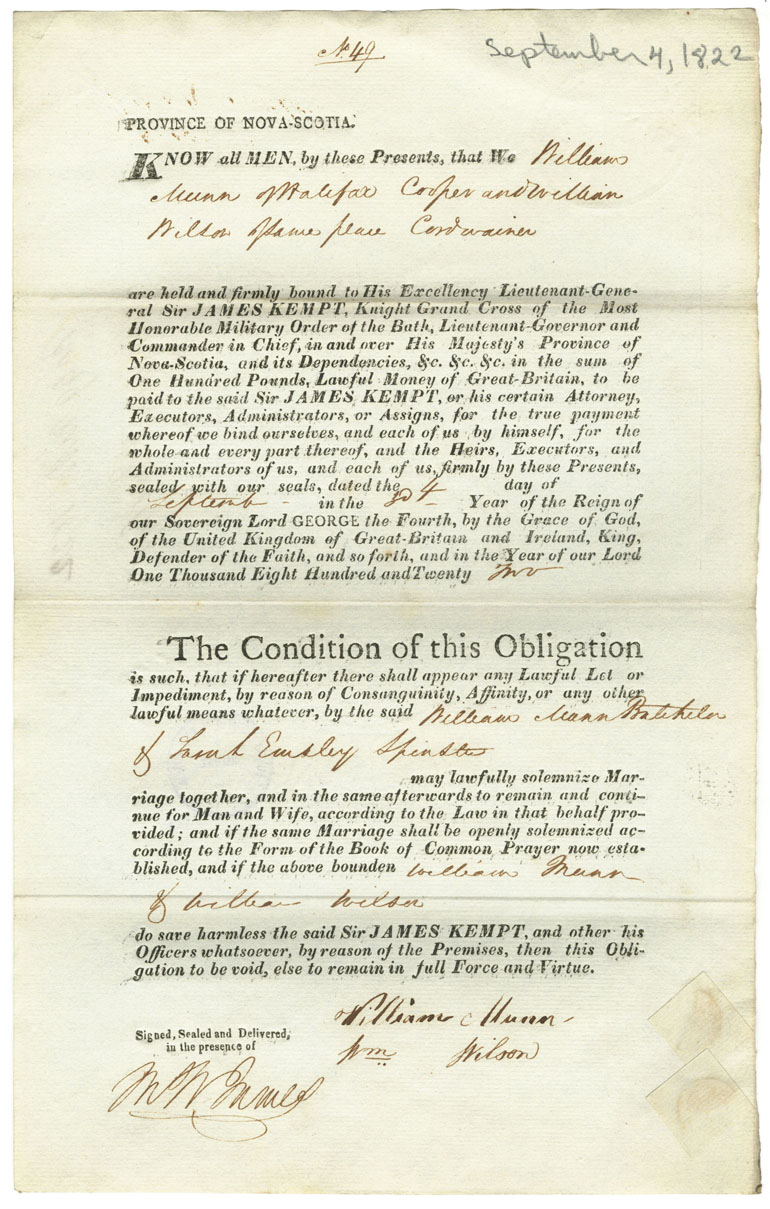 No. 49
September 4, 1822
PROVINCE OF NOVA-SCOTIA.
KNOW all MEN, by these Presents, that We William
Munn of Halifax Cooper and William
Wilson of same place Cordwainer
are held and firmly bound to His Excellency Lieutenant-Gene-
ral Sir JAMES KEMPT, Knight Grand Cross of the Most
Honorable Military Order of the Bath, Lieutenant-Governor and
Commander in Chief, in and over His Majesty's Province of
Nova-Scotia, and its Dependencies, &c. &c. &c. in the sum of
One Hundred Pounds, Lawful Money of Great-Britain, to be
paid to the said Sir JAMES KEMPT, or his certain Attorney,
Executors, Administrators, or Assigns, for the true payment
whereof we bind ourselves, and each of us by himself, for the
whole and every part thereof, and the Heirs, Executors, and
Administrators of us, and each of us, firmly by these Presents,
sealed with our seals, dated the 4 day of
Septemb in the 3d Year of the Reign of
our Sovereign Lord GEORGE the Fourth, by the Grace of God,
of the United Kingdom of Great-Britain and Ireland, King,
Defender of the Faith, and so forth, and in the Year of our Lord
One Thousand Eight Hundred and Twenty Two
The Condition of this Obligation
is such, that if hereafter there shall appear any Lawful Let or
Impediment, by reason of Consanguinity, Affinity, or any other
lawful means whatever, by the said William Munn Batchelor
& Sarah Emsley Spinster
may lawfully solemnize Mar-
riage together, and in the same afterwards to remain and conti-
nue for Man and Wife, according to the Law in that behalf pro-
vided; and if the same Marriage shall be openly solemnized ac-
cording to the Form of the Book of Common Prayer now esta-
blished, and if the above bounden William Munn
& William Wilson
do save harmless the said Sir JAMES KEMPT, and other his
Officers whatsoever, by reason of the Premises, then this Obli-
gation to be void, else to remain in full Force and Virtue.
William Munn
Wm Wilson
Signed, Sealed and Delivered,
in the presence of
James